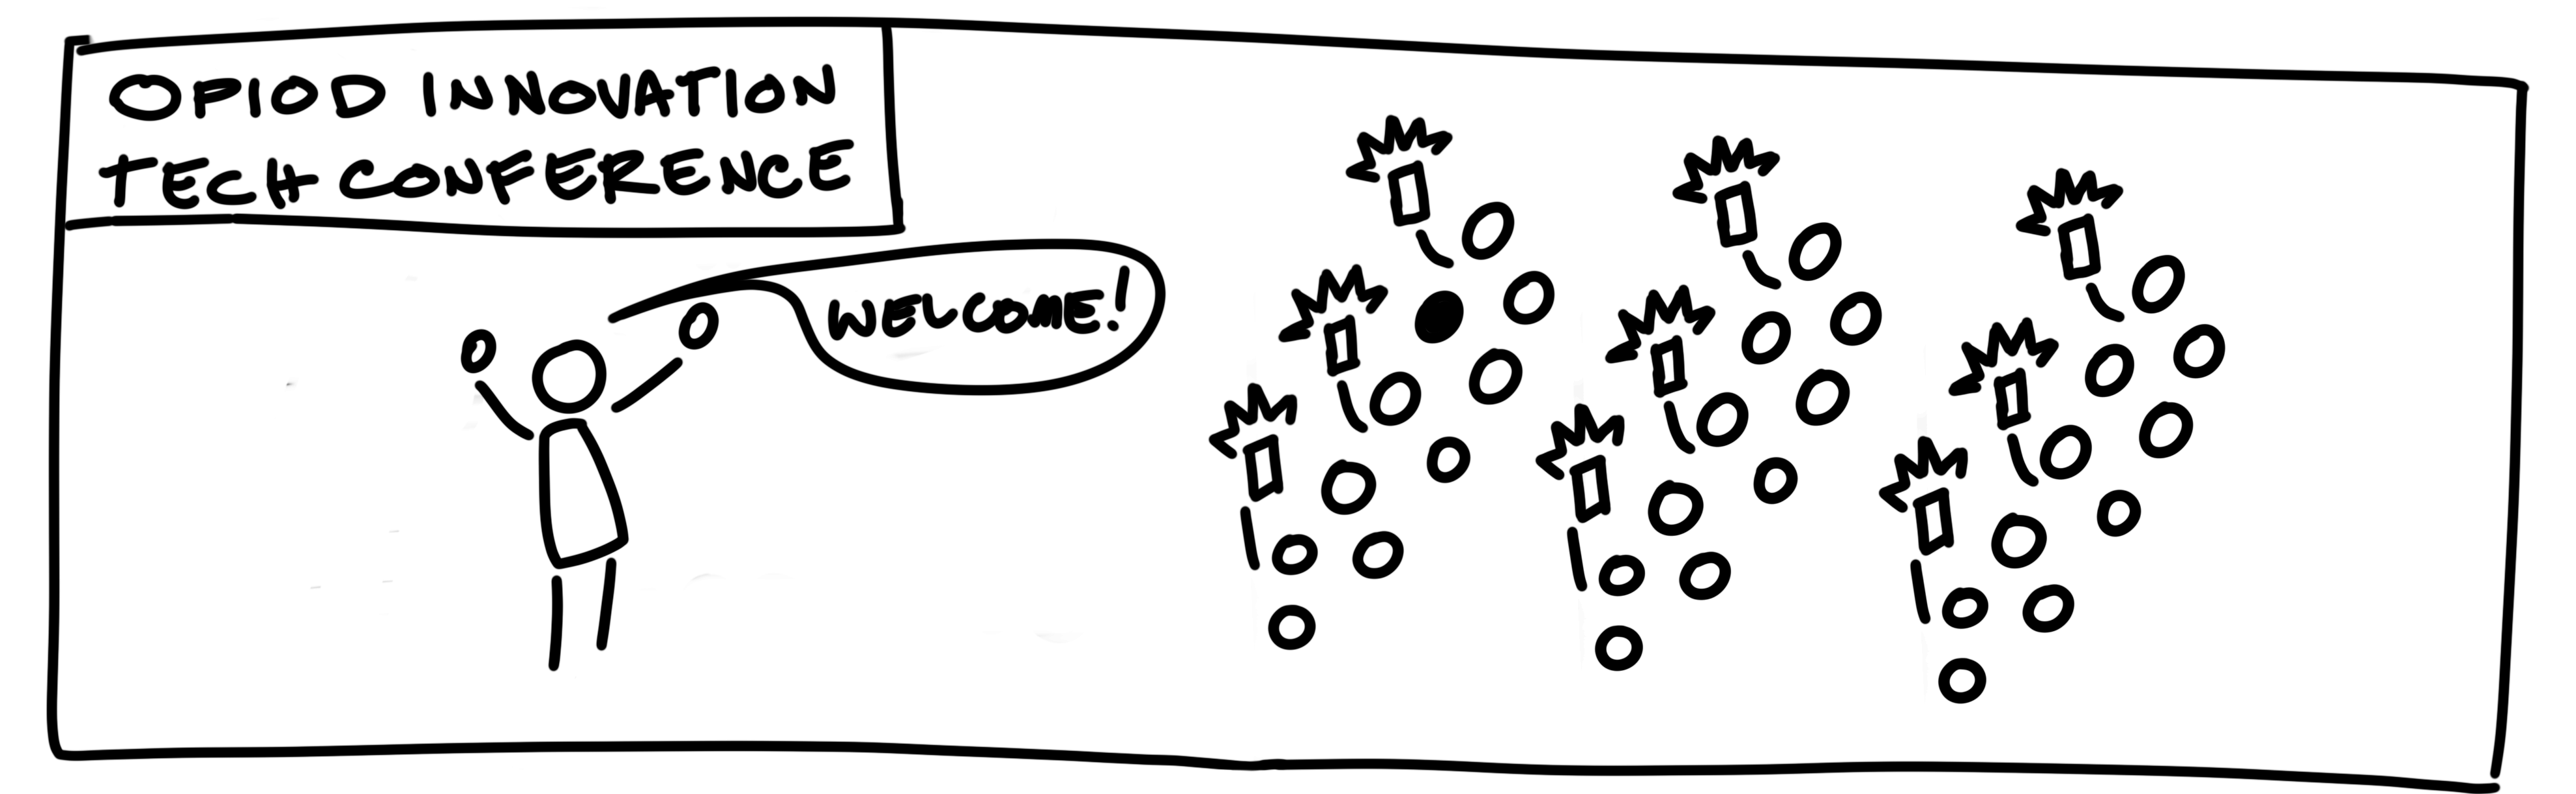 OPIOD INNOVATION
TECH CONFERENCE
WELCOME!